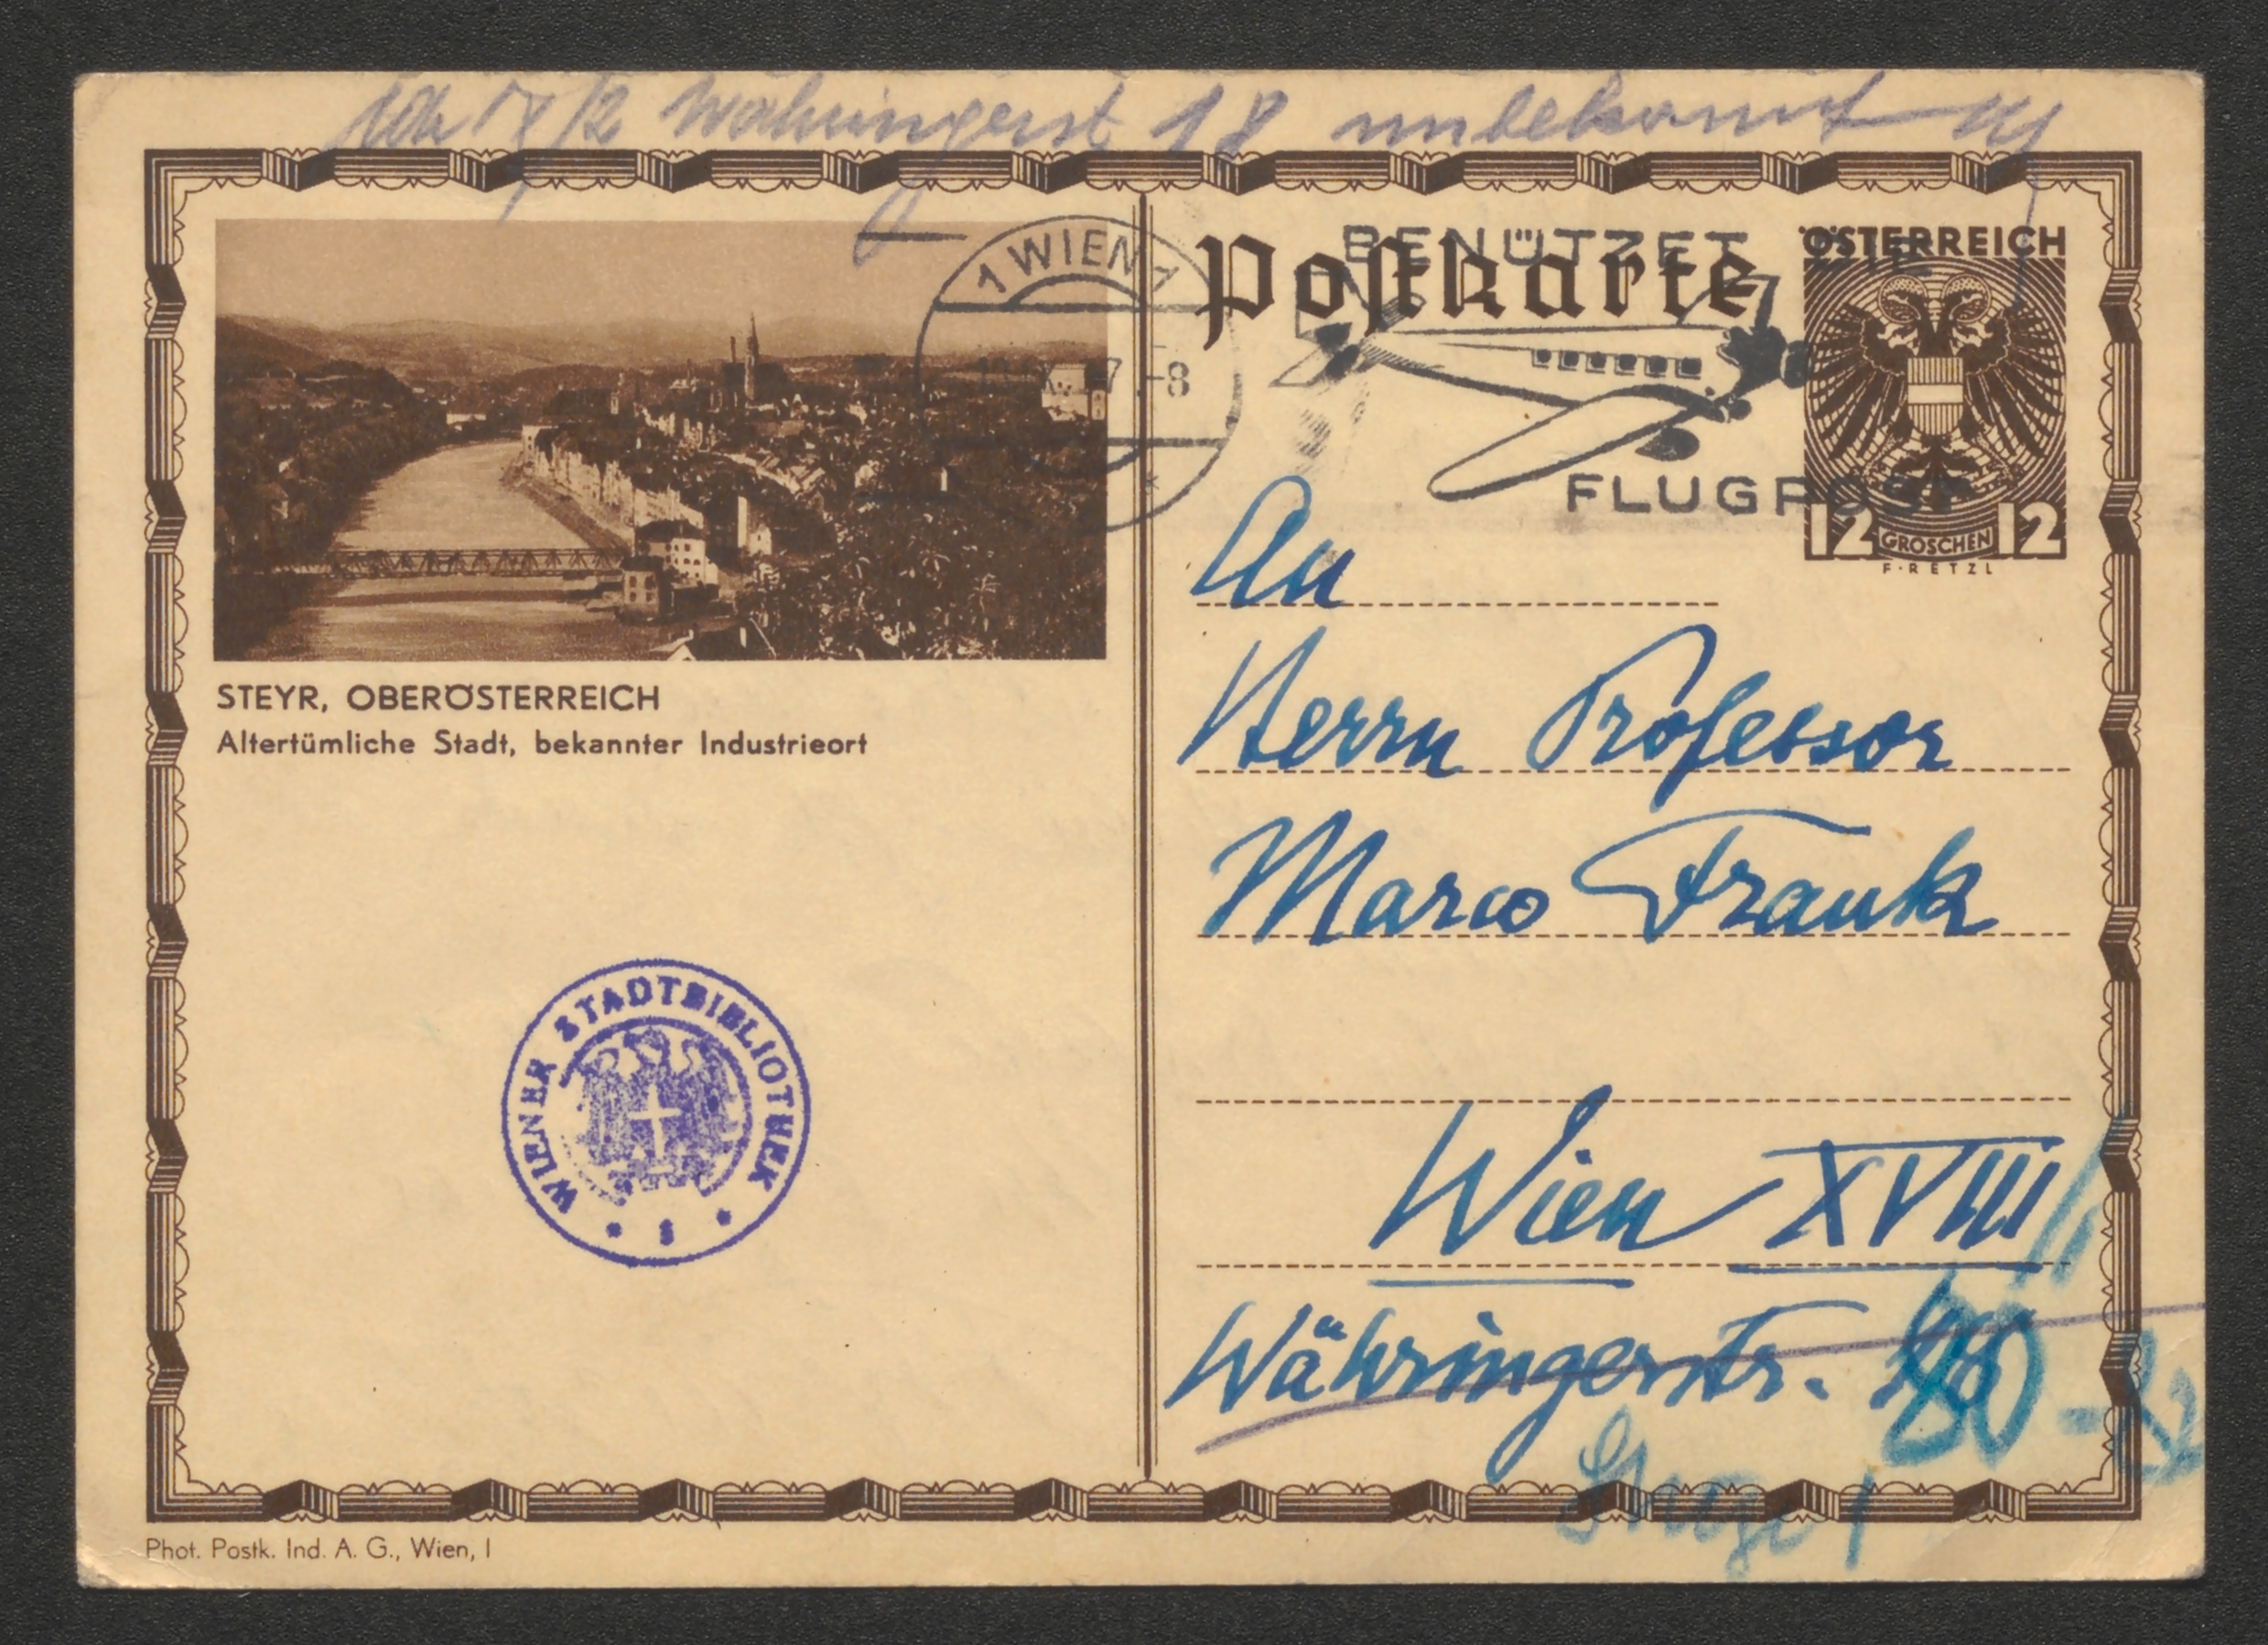 Währingerst 18 unbekannt
1 WIEN 1
-8
Postkarte
BENÜTZET DIE
FLUGPOST
ÖSTERREICH
12 GROSCHEN 12
F·RETZL
STEYR, OBERÖSTERREICH
Altertümliche Stadt, bekannter Industrieort
WIENER STADTBIBLIOTHEK
An
Herrn Professor
Marco Frank
Wien XVIII
Währingerstr.
80
Phot. Postk. Ind. A. G., Wien, I